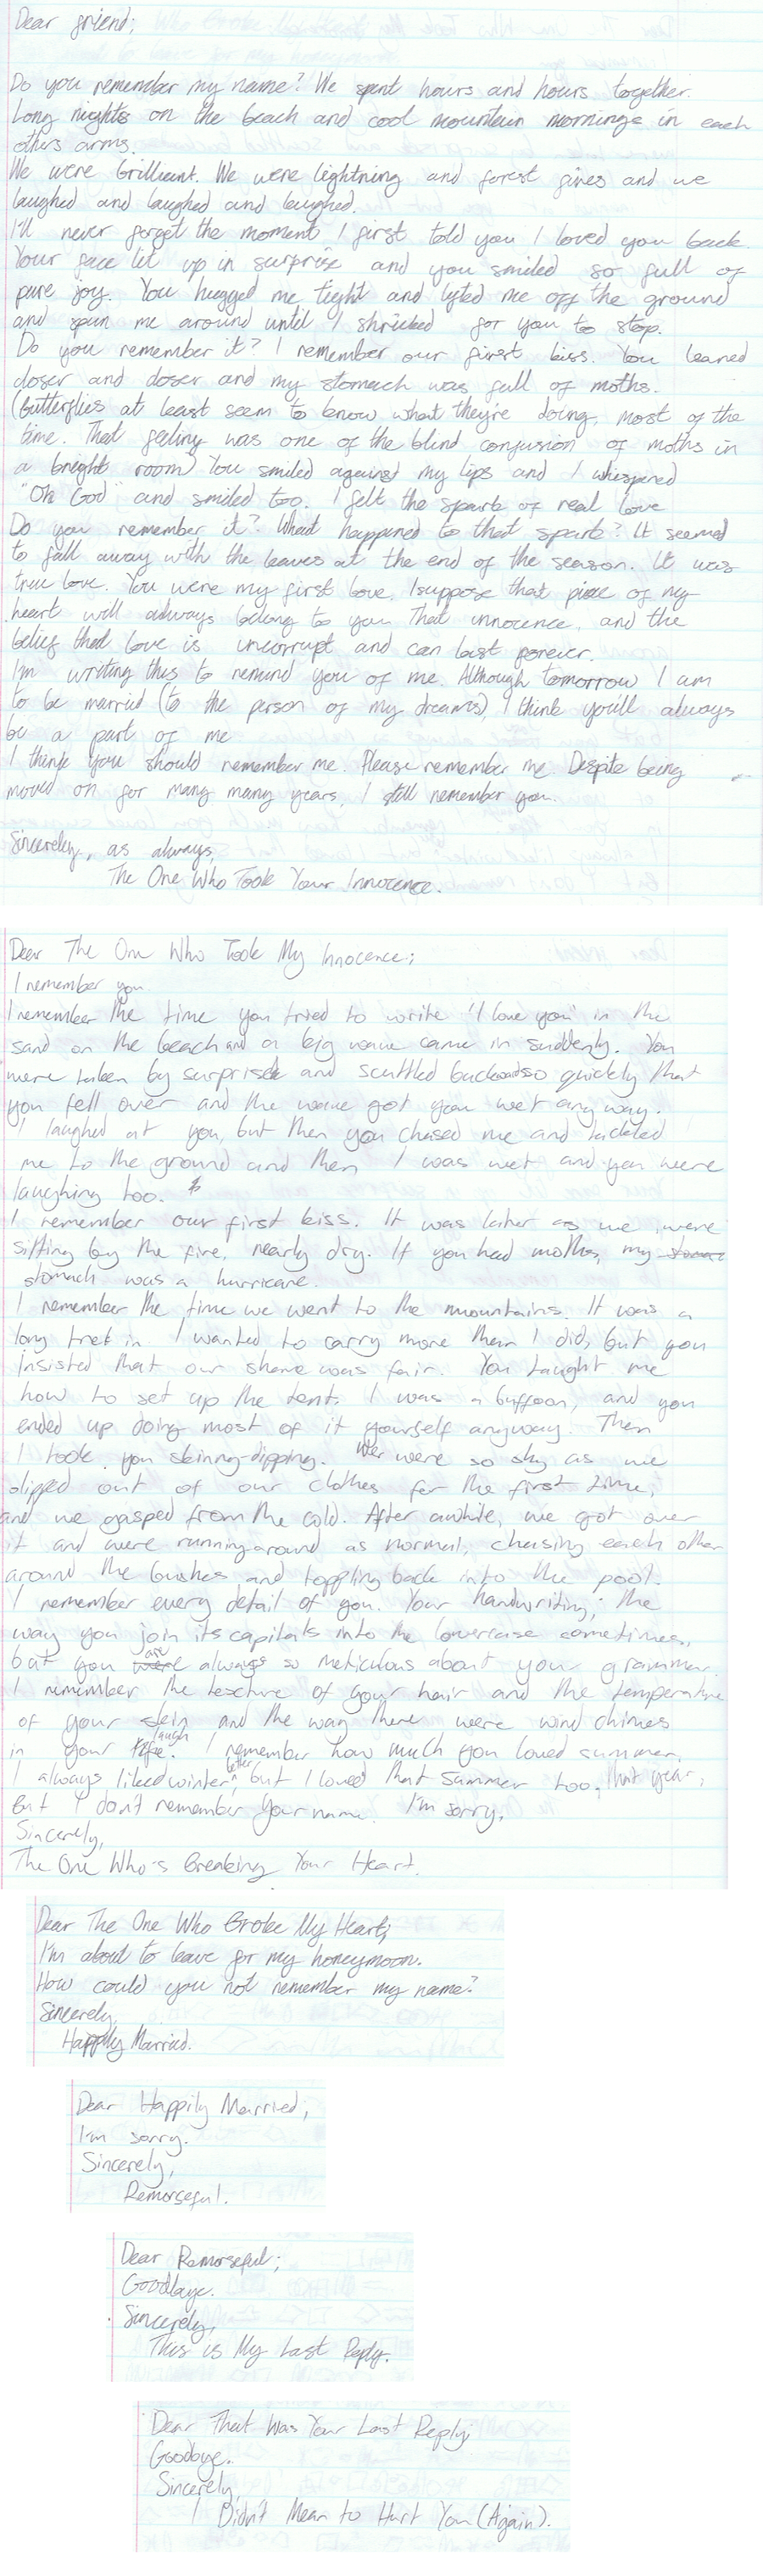 Dear friend;
Do you remember my name? We spent hours and hours together.
Long nights on the beach and cool mountain mornings in each
others arms.
We were brilliant. We were lightning and forest fires and we
laughed and laughed and laughed.
I'll never forget the moment I first told you I loved you back.
Your face lit up in surprise and you smiled so full of
pure joy. You hugged me tight and lifted me off the ground
and spun me around until I shrieked for you to stop.
Do you remember it? I remember our first kiss. You leaned
closer and closer and my stomach was full of moths.
(Butterflies at least seem to know what they're doing, most of the
time. That feeling was one of the blind confusion of moths in
a bright room) You smiled against my lips and I whispered
"Oh God" and smiled too. I felt the spark of real love
Do you remember it? What happened to that spark? It seemed
to fall away with the leaves at the end of the season. It was
true love. You were my first love. I suppose that piece of my
heart will always belong to you. That innocence, and the
belief that love is uncorrupt and can last forever.
I'm writing this to remind you of me. Although tomorrow I am
to be married (to the person of my dreams), I think you'll always
be a part of me
I think you should remember me. Please remember me. Despite being
moved on for many many years, I still remember you.
Sincerely, as always,
The One Who Took Your Innocence.
Dear The One Who Took My Innocence;
I remember you.
I remember the time you tried to write "I love you" in the
sand on the beach and a big wave came in suddenly. You
were taken by surprise and scuttled backwards so quickly that
you fell over and the wave got you wet anyway.
I laughed at you, but then you chased me and tackled
me to the ground and then I was wet and you were
laughing too.
I remember our first kiss. It was later as we were
sitting by the fire, nearly dry. If you had moths, my
stomach was a hurricane.
I remember the time we went to the mountains. It was a
long trek in. I wanted to carry more than I did, but you
insisted that our share was fair. You taught me
how to set up the tent. I was a buffoon, and you
ended up doing most of it yourself anyway. Then
I took you skinny-dipping. We were so shy as we
slipped out of our clothes for the first time,
and we gasped from the cold. After awhile, we got over
it and were running around as normal, chasing each other
around the bushes and toppling back into the pool.
I remember every detail of you. Your handwriting; the
way you join its capitals into the lowercase sometimes,
but you are always so meticulous about your grammar.
I remember the texture of your hair and the temperature
of your skin and the way there were wind chimes
in your laugh. I remember how much you loved summer.
I always liked winter better, but I loved that summer too, that year,
But I don't remember your name. I'm sorry.
Sincerely,
The One Who's Breaking Your Heart.
Dear The One Who Broke My Heart;
I'm about to leave for my honeymoon.
How could you not remember my name?
Sincerely,
Happily Married.
Dear Happily Married;
I'm sorry.
Sincerely,
Remorseful.
Dear Remorseful;
Goodbye.
Sincerely,
This is My Last Reply.
Dear That Was Your Last Reply;
Goodbye.
Sincerely,
I Didn't Mean to Hurt You (Again).